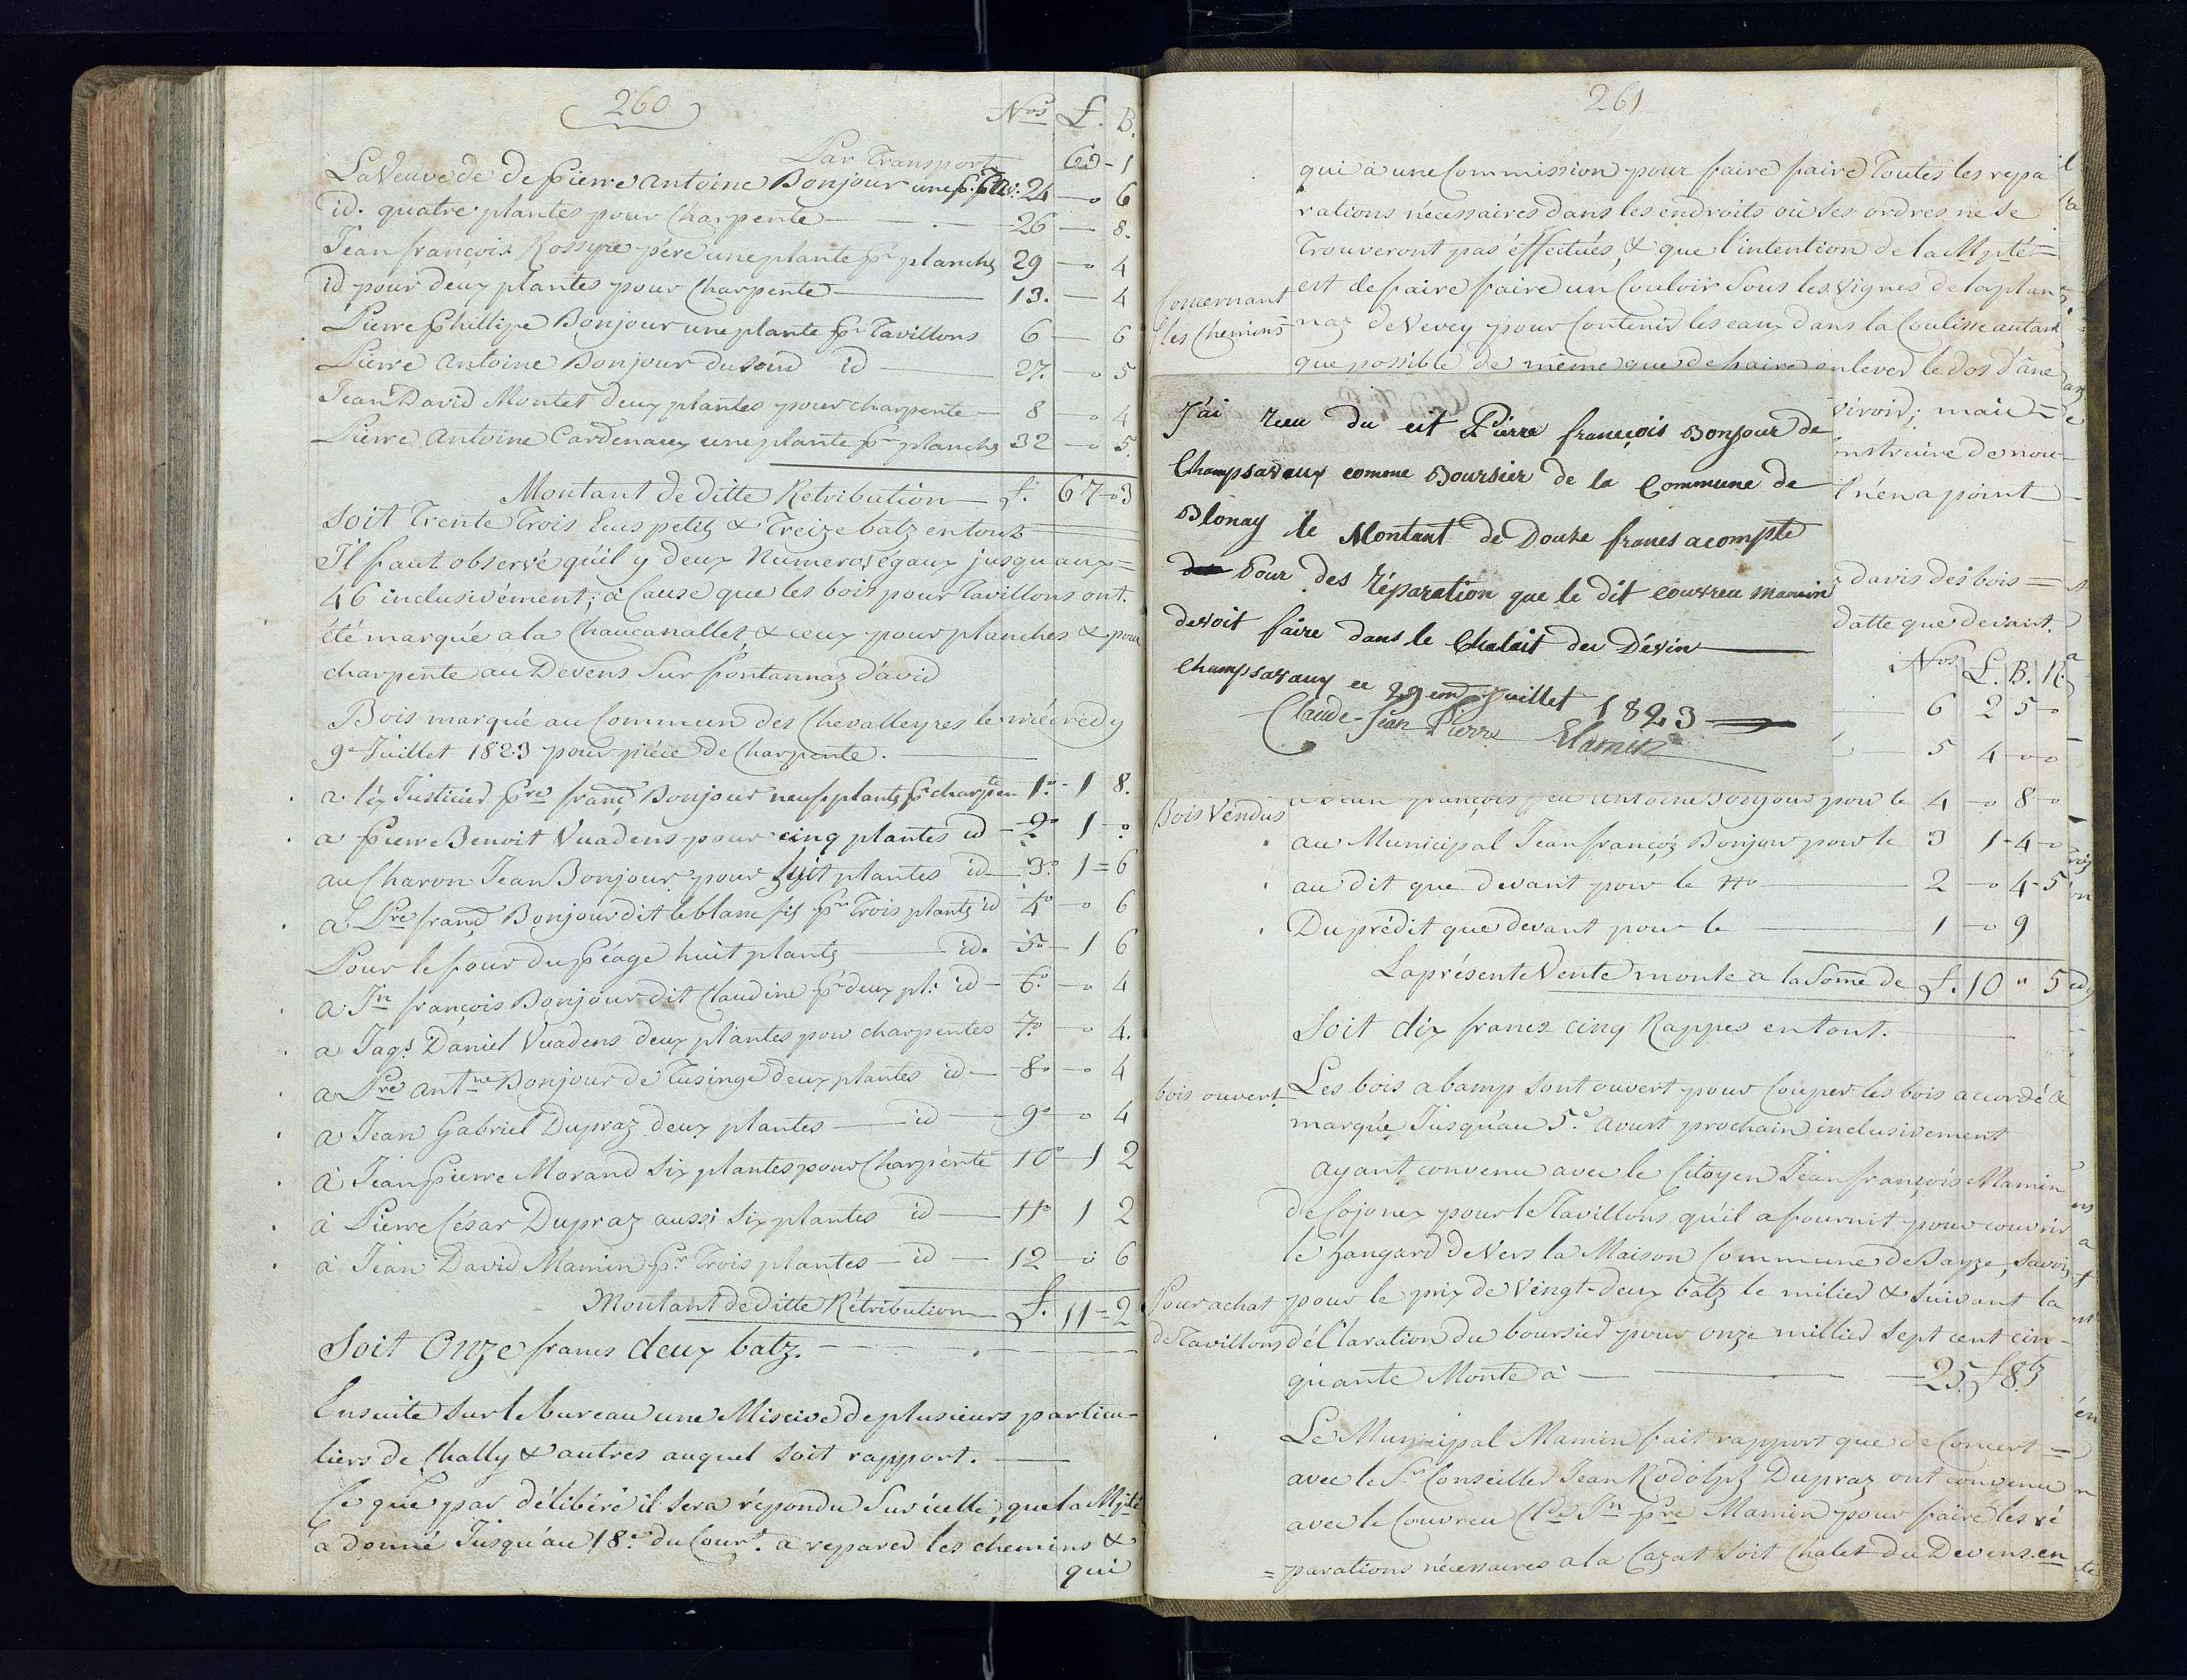 260
Nos £. B.
Par Transport 63-1
La Veuve de de pierre antoine Bonjour une p. Tav. 24 - o 6
id. quatre plantes pour Charpente 26 - 8.
Jean françois Rossyre père une plante pr planches 29 - o 4
id pour deux plantes pour Charpente 13. - 4
Pierre phillipe Bonjour une plante pr Tavillons 6 - 6
Pierre Antoine Bonjour du id 27. - o 5
Jean David Montet deux plantes pour charpente 8 - o 4
Pierre Antoine Cardenaux une plante pr planches 32 - o 5.
Montant de ditte Retribution £. 67-o3
soit Trente Trois Ecus petits & Treize batz en tout
Il faut observé qu'il y deux Numeros égaux jusqu'aux=
46 inclusivément; à Cause que les bois pour Tavillons ont.
été marqué a la & ceux pour planches & pour
charpente au Devens Sur fontannaz d'avid
Bois marqué au Commun des Chevalleyres le mécredy
9e Juillet 1823 pour piéce de Charpente.
a l'éx Justicier pre franç Bonjour neuf plants pr charpten 1o - 1 8.
a pierre Benoit Vuadens pour cinq plantes id - 2o 1 - o
au Charon Jean Bonjour pour huit plantes id 3o. 1 = 6
a Pre franç Bonjour dit le blanc fils pr Trois plants id 4o - o 6
Pour le four du péage huit plants id. 5o - 1 6
a Jn françois Bonjour dit Claudine pr deux pl: id - 6.o - o 4
a Jaqs Daniel Vuadens deux plantes pour charpentes 7.o - o 4.
a Pre antne Bonjour de Tusinge deux plantes id - 8o - o 4
a Jean Gabriel Dupraz deux plantes id 9o - o 4
à Jean pierre Morand Six plantes pour Charpente 10o - 1 2
à Pierre César Dupraz aussi Six plantes id 11o 1 2
à Jean David Mamin pr Trois plantes - id 12 - o 6
Montant de Ditte Rétribution £. 11=2
Soit Onze francs deux batz.
Ensuite Sur le bureau une Miscive de plusieurs particu-
liers de Chally & autres auquel soit rapport.
Ce que par délibéré il sera répondu Sur icelle, que la Mpté
a donné Jusqu'au 18e. du Cour.t a reparer les chemins &
qui
261
qui a une Commission pour faire faire Toutes les repa
rations nécessaires dans les endroits où ses ordres ne se
Trouveront pas éffectués, & que l'intention de la Mpté=
Concernant
les Chemins
est de faire faire un Couloir Sous les Vignes de la plan
naz de Vevey pour Contenir les eaux dans la Coulisse autant
que possible de même que de faire enlever le dos d'âne
viroir; mais=
onstruire de nou-
l n'en a point
J'ai reeu du cit Pierre franeçois Bonjour de
Champsavaux comme Boursier de la Commune de
Blonay le Montant de Douze francs acompte
Pour des réparation que le dit couvreu Mamin
devoit faire dans le Chalait du Dévin
Champsavaux ce 29 Juillet 1823
Claude Jean Pierre Mamin
davis des bois=
datte que devant.
Nos £. B. R.
6 2 5 o
5 4 - o o
Bois Vendus
a Jean françois feu antoine Bonjour pour le 4 - o 8 - o
au Municipal Jean françoz Bonjour pour le 3 1 - 4 - o
au dit que devant pour le No 2 - o 4 - 5
Du prédit que devant pour le 1 - o 9
La présente Vente monte a la Somme de £. 10 " 5
Soit dix francs cinq Rappes en tout.
bois ouvert.
Les bois a bamp sont ouvert pour Couper les bois accordé &
marqué Jusqu'au 5.e Avust prochain inclusivement
ayant convenu avec le Citoyen Jean françois Mamin
de Cojonex pour le Tavillons qu'il a fournit pour couvrir
le hangard de Vers la Maison Commune de Bayze, Savoir
Pour achat
de Tavillons
pour le prix de Vingt-deux batz le milier & suivant la
déclaration du boursier pour onze millier Sept cent cin-
quante Monte à 25. f 8. bz
Le Municipal Mamin fait rapport que de Concert=
avec le Sr Conseiller Jean Rodolph Dupraz ont convenu
avec le Couvreu Clde Jn pre Mamin pour faire les ré
=parations nécessaires a la Cazat soit Chalet du Devens en